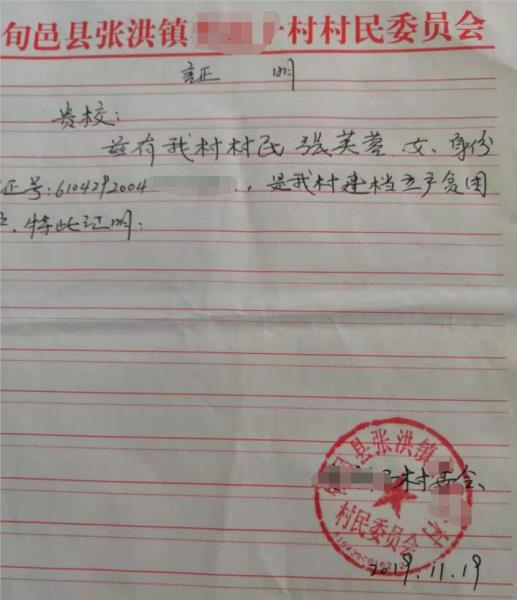 旬邑县张洪镇 村村民委员会
证 明
贵校：
兹有我村村民张芙蓉，女、身份
证号：6104292004 ，是我村建档立户贫困
户、特此证明：
旬邑县张洪镇 村
村委会、
村民委员会
2019.11.19